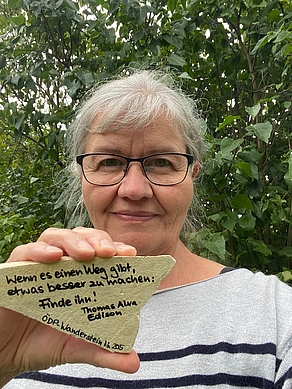 Wenn es einen Weg gibt,
etwas besser zu machen:
Finde ihn!
Thomas Alva
Edison
ÖDP Wanderstein 16.205